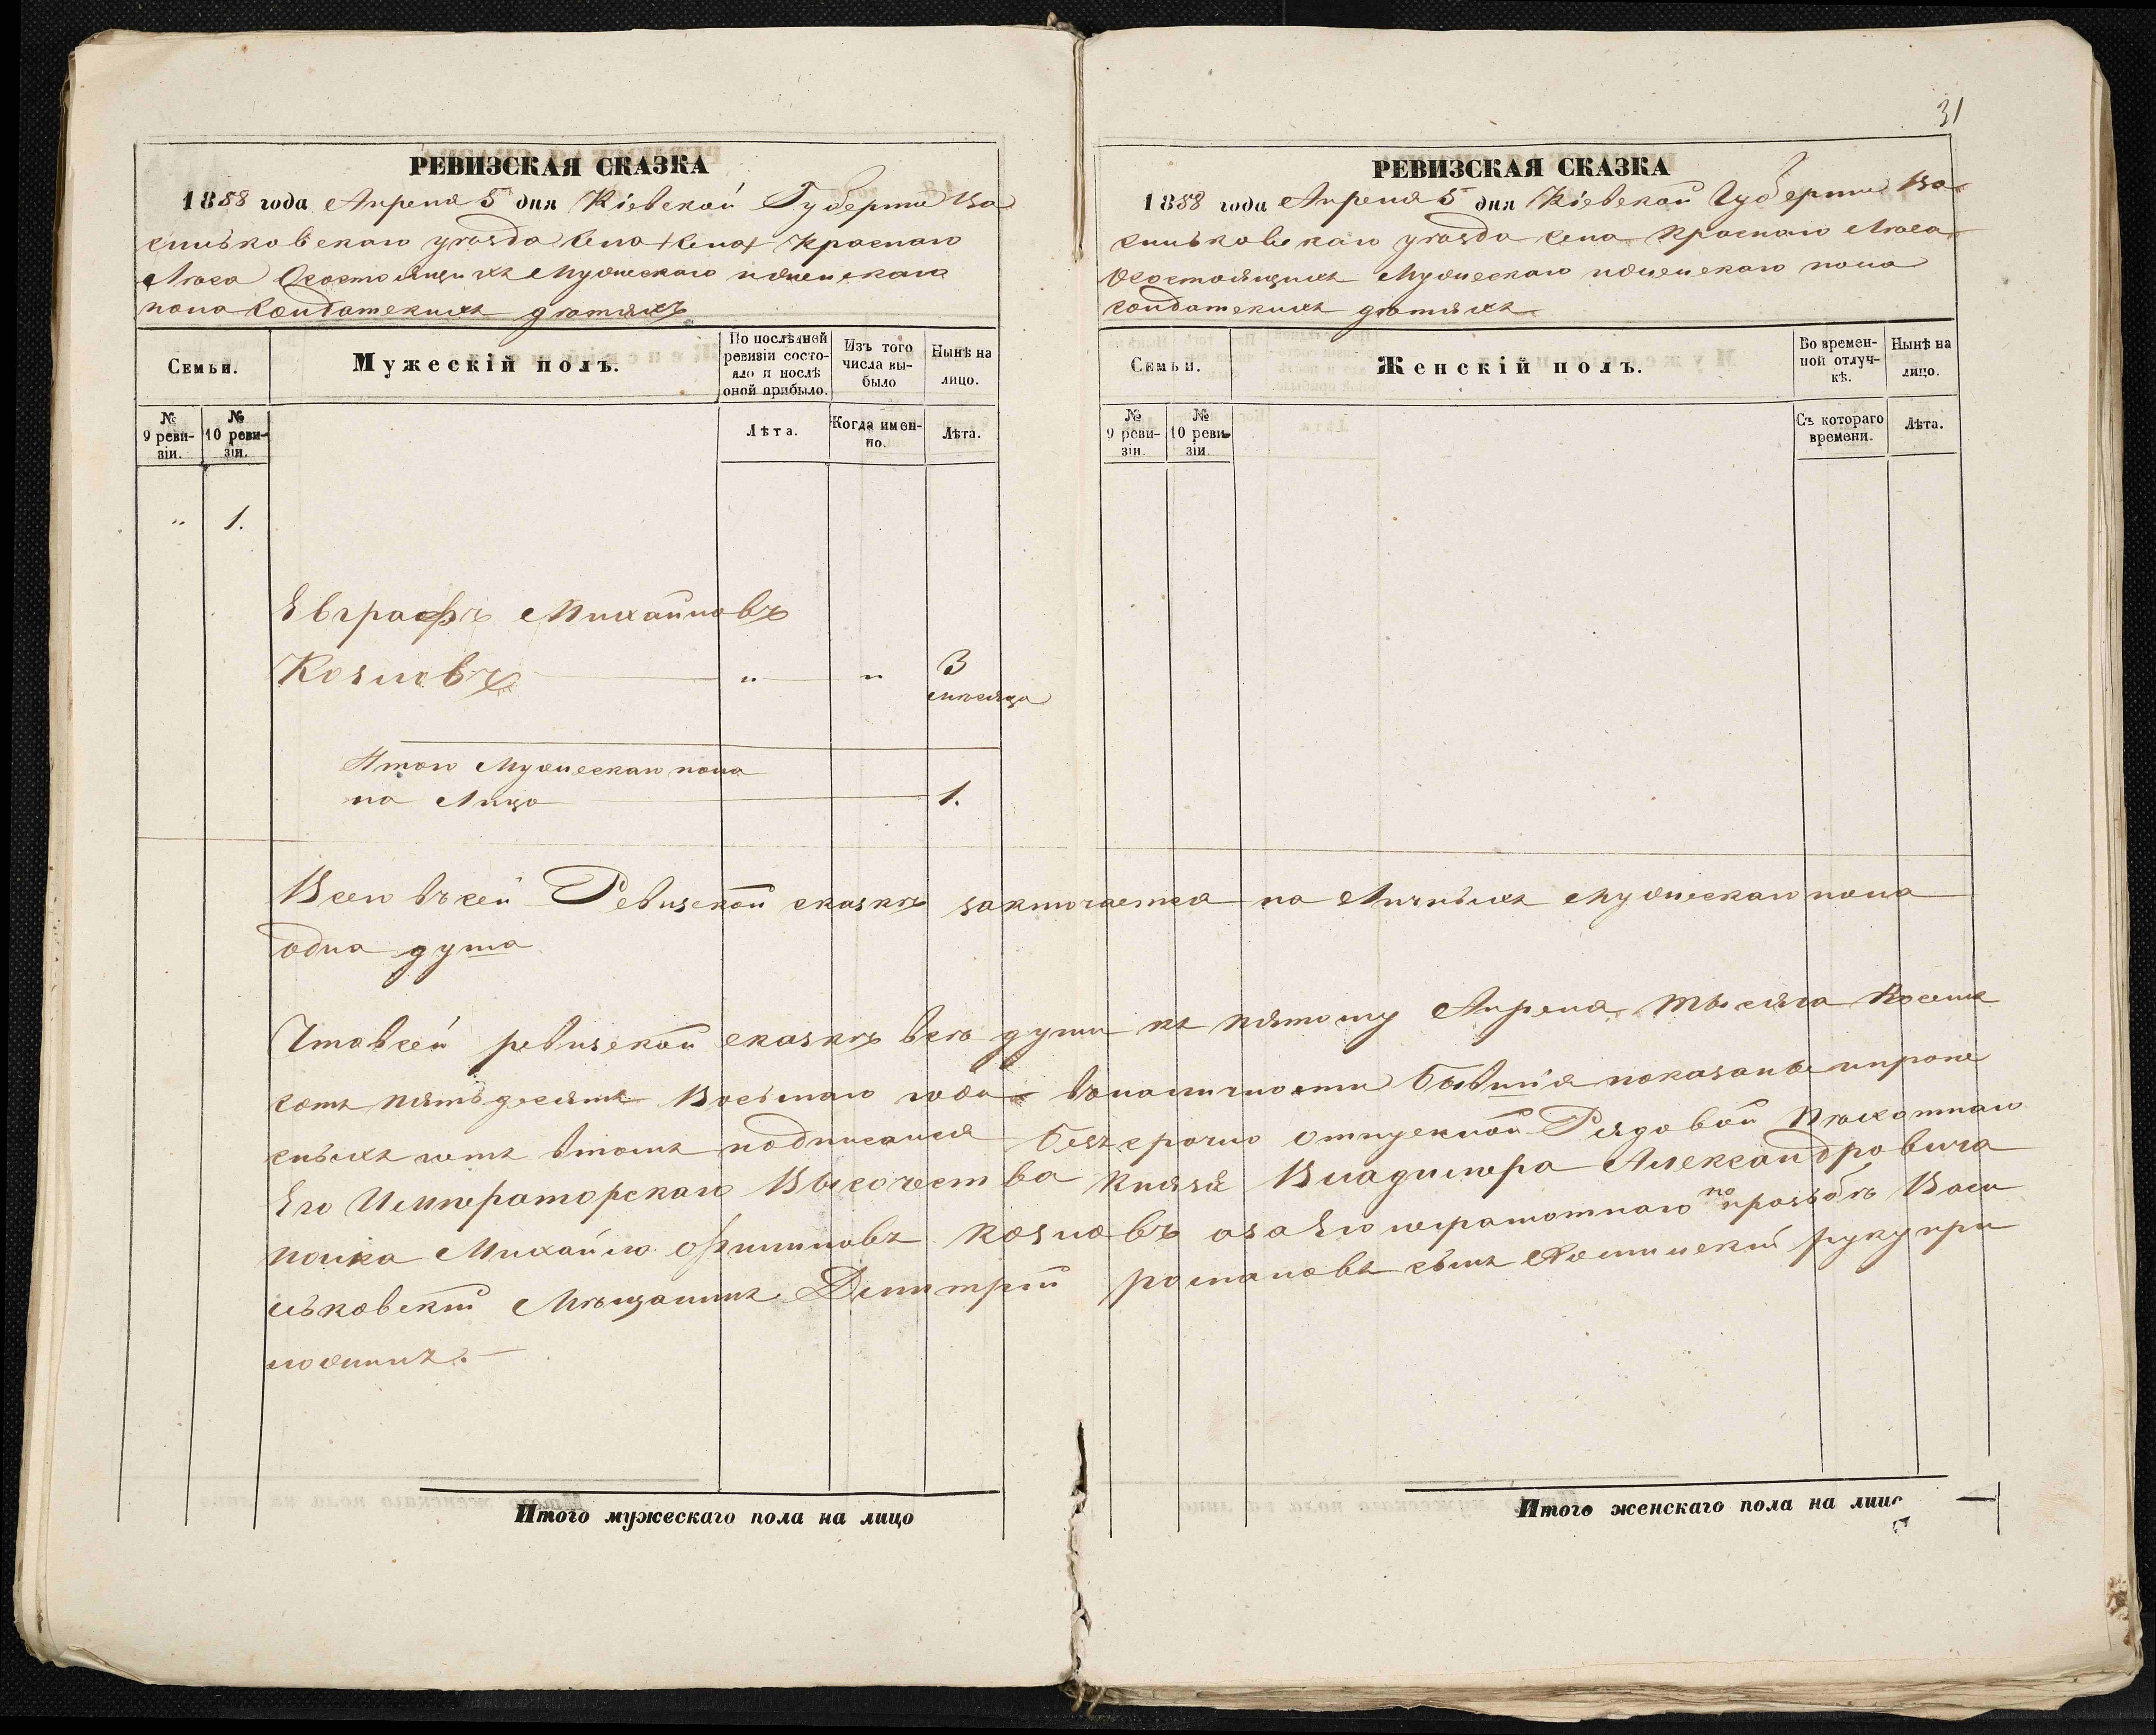 31
РЕВИЗСКАЯ СКАЗКА
1858 года Апреля 5 дня Кіевской Губерніи Ва
сильковскаго уѣзда села села Краснаго
Лѣса Осостоящихъ Мужескаго иженскаго
пола Солдатскихъ дѣтяхъ
Семьи.
Мужескій полъ.
По послѣдней ревизіи состояло и послѣ оной прибыло.
Изъ того числа выбыло
Нынѣ на лицо.
№ 9 ревизіи.
№ 10 ревизіи.
Лѣта.
Когда именно.
Лѣта.
„ 1.
Евграфъ Михайловъ
Козловъ „ „ 3
мѣсяца
Итого Мужескаго пола
на Лицо 1.
РЕВИЗСКАЯ СКАЗКА
1858 года Апреля 5 дня Кіевской Губерніи Ва
сильковскаго уѣзда села Краснаго Лѣса
Осостоящихъ Мужескаго иженскаго пола
солдатскихъ дѣтяхъ
Семьи.
Женскій полъ.
Во временной отлучкѣ.
Нынѣ на лицо.
№ 9 ревизіи.
№ 10 ревизіи.
Съ котораго времени.
Лѣта.
Всего въсей Ревизской сказкѣ заключается на Личныхъ мужескаго пола
одна душа
Чтовсей ревизской сказкѣ всѣ души къ пятому Апреля тысяча Восемь
сотъ пятьдесятъ Восьмаго года вналичности бывшія показаны ипропу
сныхъ нетъ втомъ подписался безсрочно отпускной Рядовой Пѣхотнаго
Его Императорскаго Высочества Князя Владимера Александровича
полка Михайло Филиповъ Козловъ азаЕго неграмотнаго по прозьбѣ Васи
льковскій Мѣщанинъ Дмитрій романовъ сынъ руку при
ложилъ.
Итого мужескаго пола на лицо
Итого женскаго пола на лицо